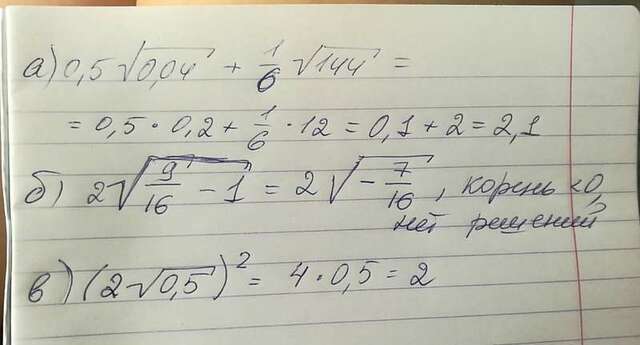 а) 0,5√0,04 + 1/6 √144 =
= 0,5 · 0,2 + 1/6 · 12 = 0,1 + 2 = 2,1
б) 2√(9/16 - 1) = 2√(-7/16), корень < 0,
нет решений
в) (2√0,5)² = 4 · 0,5 = 2